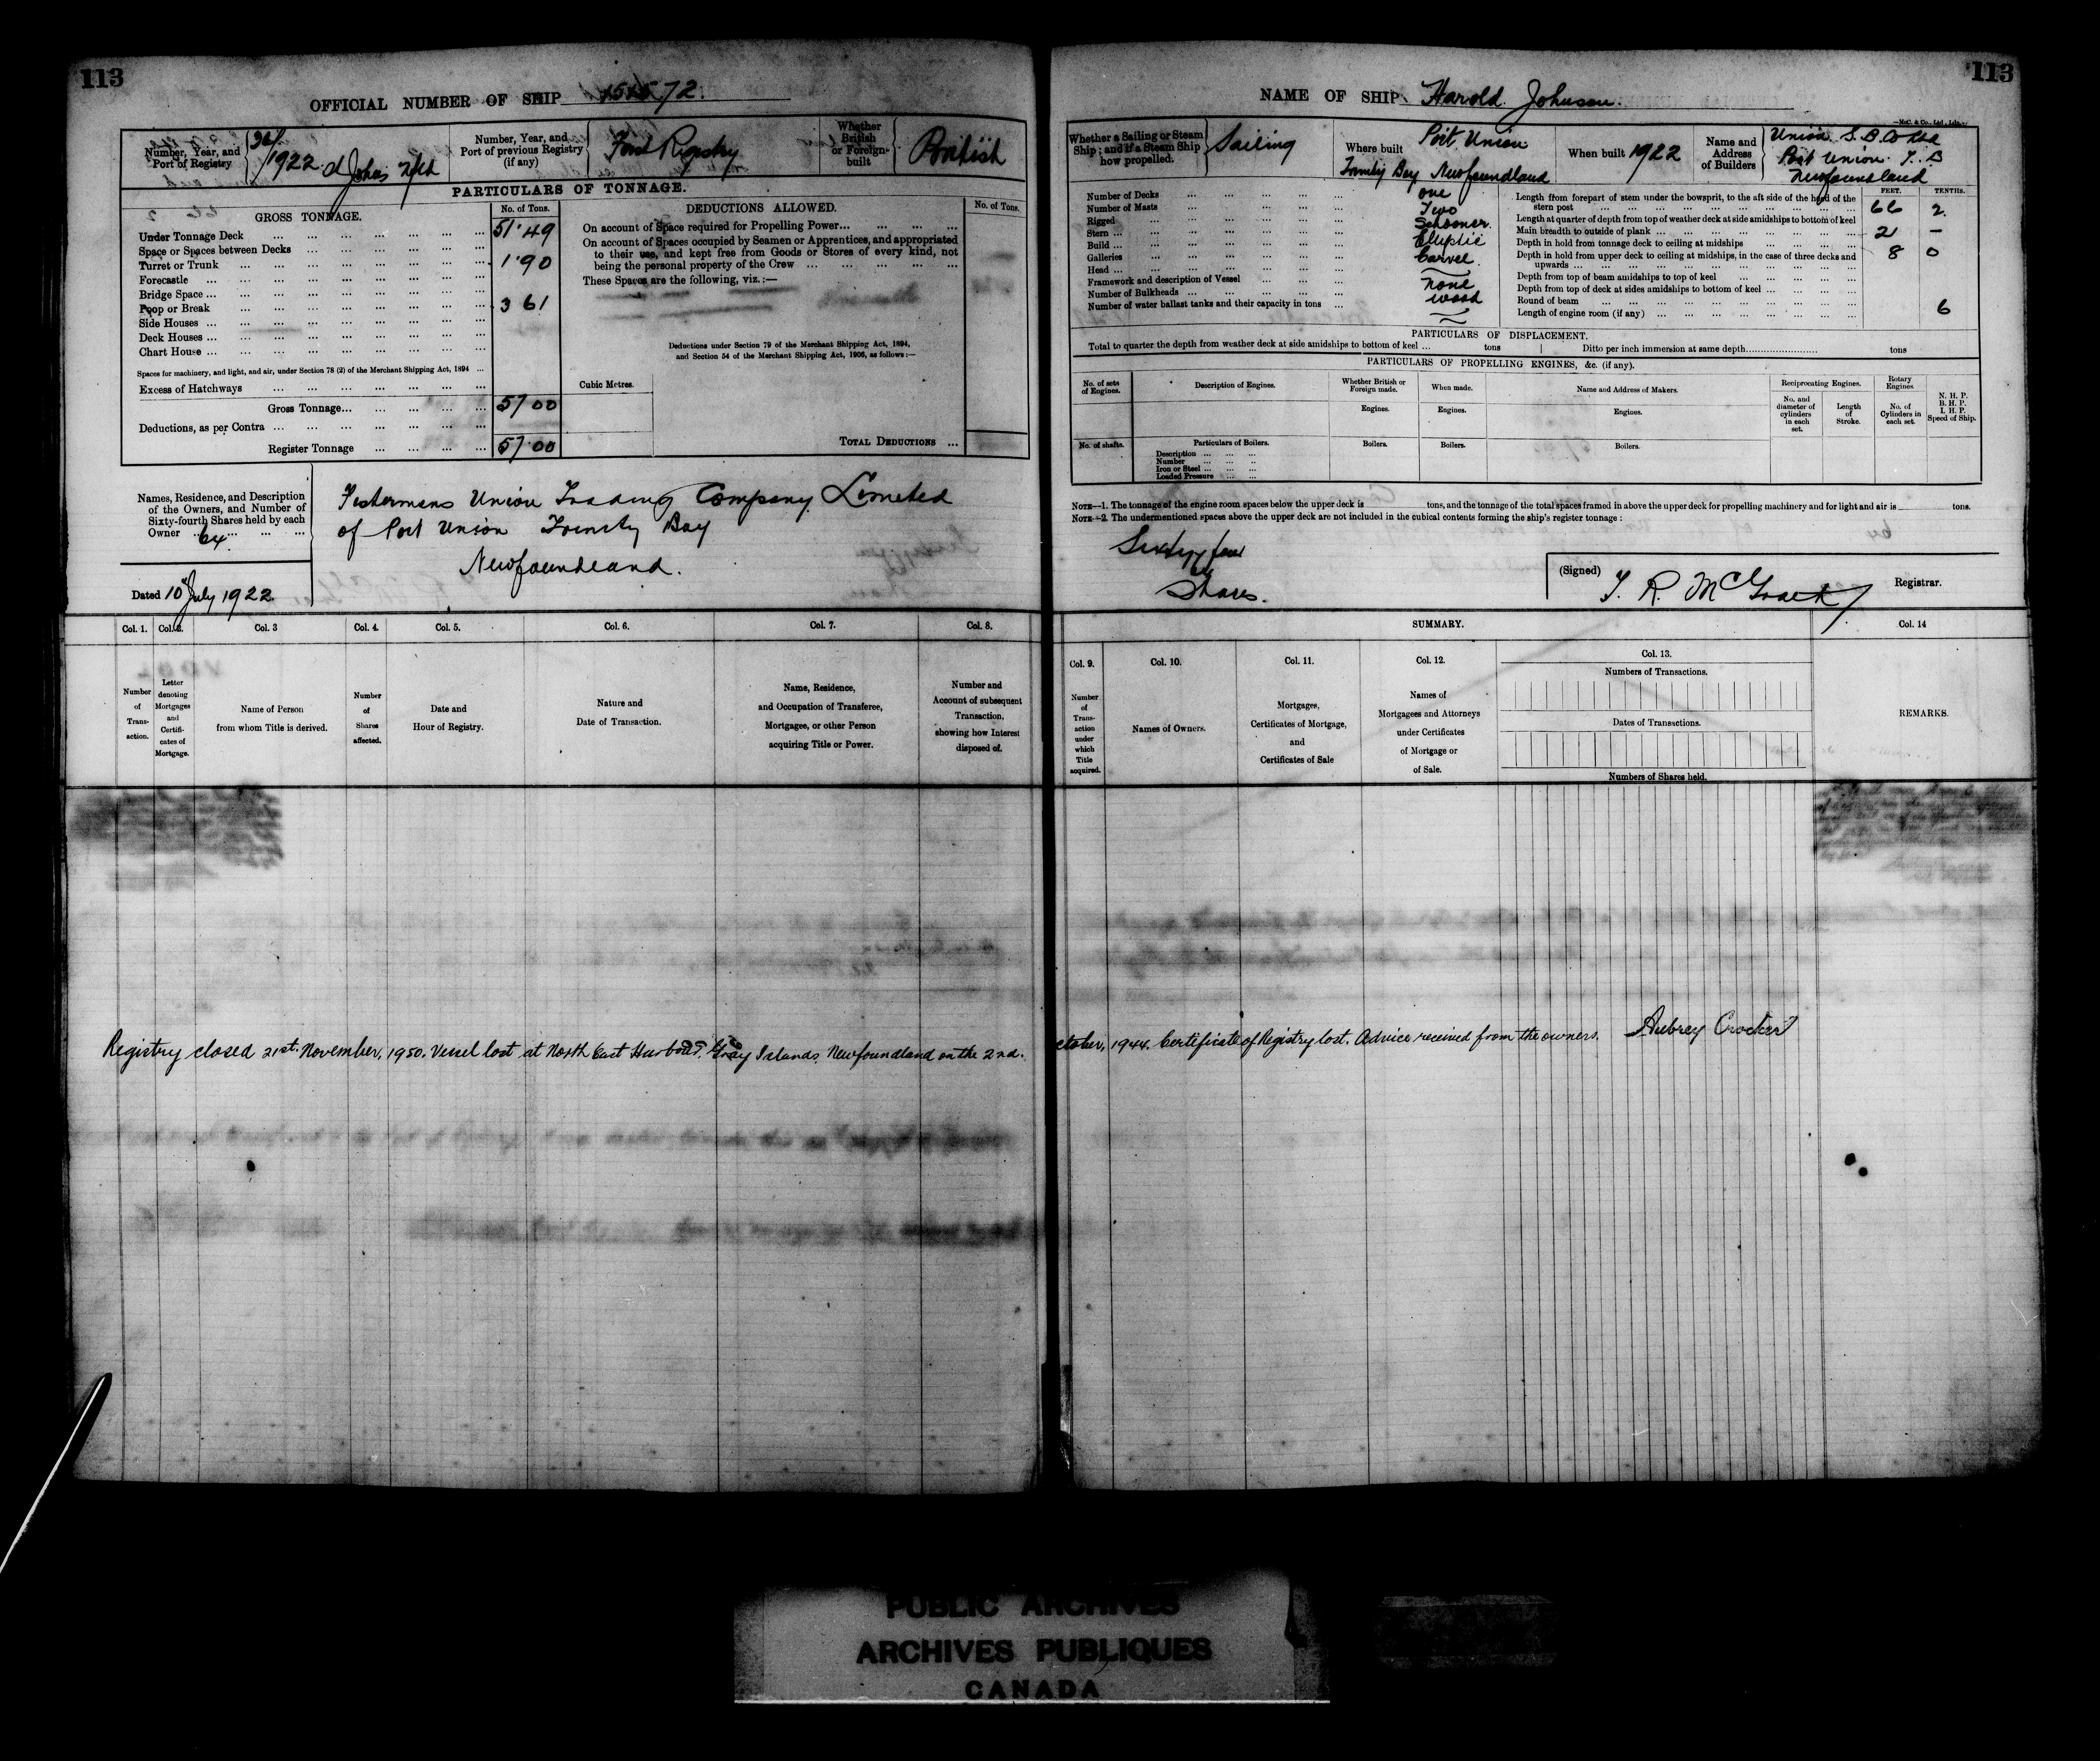 113
OFFICIAL NUMBER OF SHIP 151572.
Number, Year, and Port of Registry
1922 St Johns Nfld
Number, Year, and Port of previous Registry (if any)
First Registry
Whether British or Foreign-built
British
PARTICULARS OF TONNAGE.
GROSS TONNAGE.
No. of Tons.
DEDUCTIONS ALLOWED.
No. of Tons.
Under Tonnage Deck ... 51.49
Space or Spaces between Decks ...
Turret or Trunk ... 1.90
Forecastle ...
Bridge Space ...
Poop or Break ... 3 61
Side Houses ...
Deck Houses ...
Chart House ...
Spaces for machinery, and light, and air, under Section 78 (2) of the Merchant Shipping Act, 1894 ...
Excess of Hatchways ...
Gross Tonnage... 57 00
Deductions, as per Contra ...
Register Tonnage ... 57.00
On account of Space required for Propelling Power...
On account of Spaces occupied by Seamen or Apprentices, and appropriated
to their use, and kept free from Goods or Stores of every kind, not
being the personal property of the Crew ...
These Spaces are the following, viz.:—
Deductions under Section 79 of the Merchant Shipping Act, 1894,
and Section 54 of the Merchant Shipping Act, 1906, as follows:—
Cubic Metres.
TOTAL DEDUCTIONS ...
Names, Residence, and Description
of the Owners, and Number of
Sixty-fourth Shares held by each
Owner ... 64
Fishermens Union Trading Company Limited
of Port Union Trinity Bay
Newfoundland.
Dated 10 July 1922
Col. 1. Col. 2. Col. 3 Col. 4. Col. 5. Col. 6. Col. 7. Col. 8.
Number of Trans-action.
Letter denoting Mortgages and Certifi-cates of Mortgage.
Name of Person from whom Title is derived.
Number of Shares affected.
Date and Hour of Registry.
Nature and Date of Transaction.
Name, Residence, and Occupation of Transferee, Mortgagee, or other Person acquiring Title or Power.
Number and Account of subsequent Transaction, showing how Interest disposed of.
Registry closed 21st. November, 1950. Vessel lost at North East Harbour, Gray Islands, Newfoundland on the 2nd.
113
NAME OF SHIP Harold Johnson.
McC. & Co., Ltd., Ldn.
Whether a Sailing or Steam Ship; and if a Steam Ship how propelled.
Sailing
Where built
Port Union
Trinity Bay Newfoundland
When built 1922
Name and Address of Builders
Union S. B. Co Ltd
Port Union. T. B
Newfoundland
Number of Decks ... one
Number of Masts ... Two
Rigged ... Schooner
Stern ... Elliptic
Build ... Carvel.
Galleries ...
Head ... none
Framework and description of Vessel ... wood
Number of Bulkheads ...
Number of water ballast tanks and their capacity in tons ...
FEET. TENTHS.
Length from forepart of stem under the bowsprit, to the aft side of the head of the
stern post ... 66 2
Length at quarter of depth from top of weather deck at side amidships to bottom of keel
Main breadth to outside of plank ... 21 –
Depth in hold from tonnage deck to ceiling at midships ... 8 0
Depth in hold from upper deck to ceiling at midships, in the case of three decks and
upwards ...
Depth from top of beam amidships to top of keel
Depth from top of deck at sides amidships to bottom of keel ...
Round of beam ... 6
Length of engine room (if any) ...
PARTICULARS OF DISPLACEMENT.
Total to quarter the depth from weather deck at side amidships to bottom of keel ... tons
Ditto per inch immersion at same depth... tons
PARTICULARS OF PROPELLING ENGINES, &c. (if any).
No. of sets of Engines.
Description of Engines.
Whether British or Foreign made.
When made.
Name and Address of Makers.
Reciprocating Engines.
Rotary Engines.
N. H. P.
B. H. P.
I. H. P.
Speed of Ship.
Engines. Engines. Engines.
No. and diameter of cylinders in each set.
Length of Stroke.
No. of Cylinders in each set.
No. of shafts.
Particulars of Boilers.
Boilers. Boilers. Boilers.
Description ...
Number ...
Iron or Steel ...
Loaded Pressure ...
NOTE—1. The tonnage of the engine room spaces below the upper deck is tons, and the tonnage of the total spaces framed in above the upper deck for propelling machinery and for light and air is tons.
NOTE—2. The undermentioned spaces above the upper deck are not included in the cubical contents forming the ship's register tonnage:
Sixty four
Shares.
(Signed)
Registrar.
SUMMARY.
Col. 9. Col. 10. Col. 11. Col. 12. Col. 13. Col. 14
Number of Trans-action under which Title acquired.
Names of Owners.
Mortgages, Certificates of Mortgage, and Certificates of Sale
Names of Mortgagees and Attorneys under Certificates of Mortgage or of Sale.
Numbers of Transactions.
Dates of Transactions.
Numbers of Shares held.
REMARKS.
ctober, 1944. Certificate of Registry lost. Advice received from the owners. Aubrey Crocker
PUBLIC ARCHIVES
ARCHIVES PUBLIQUES
CANADA